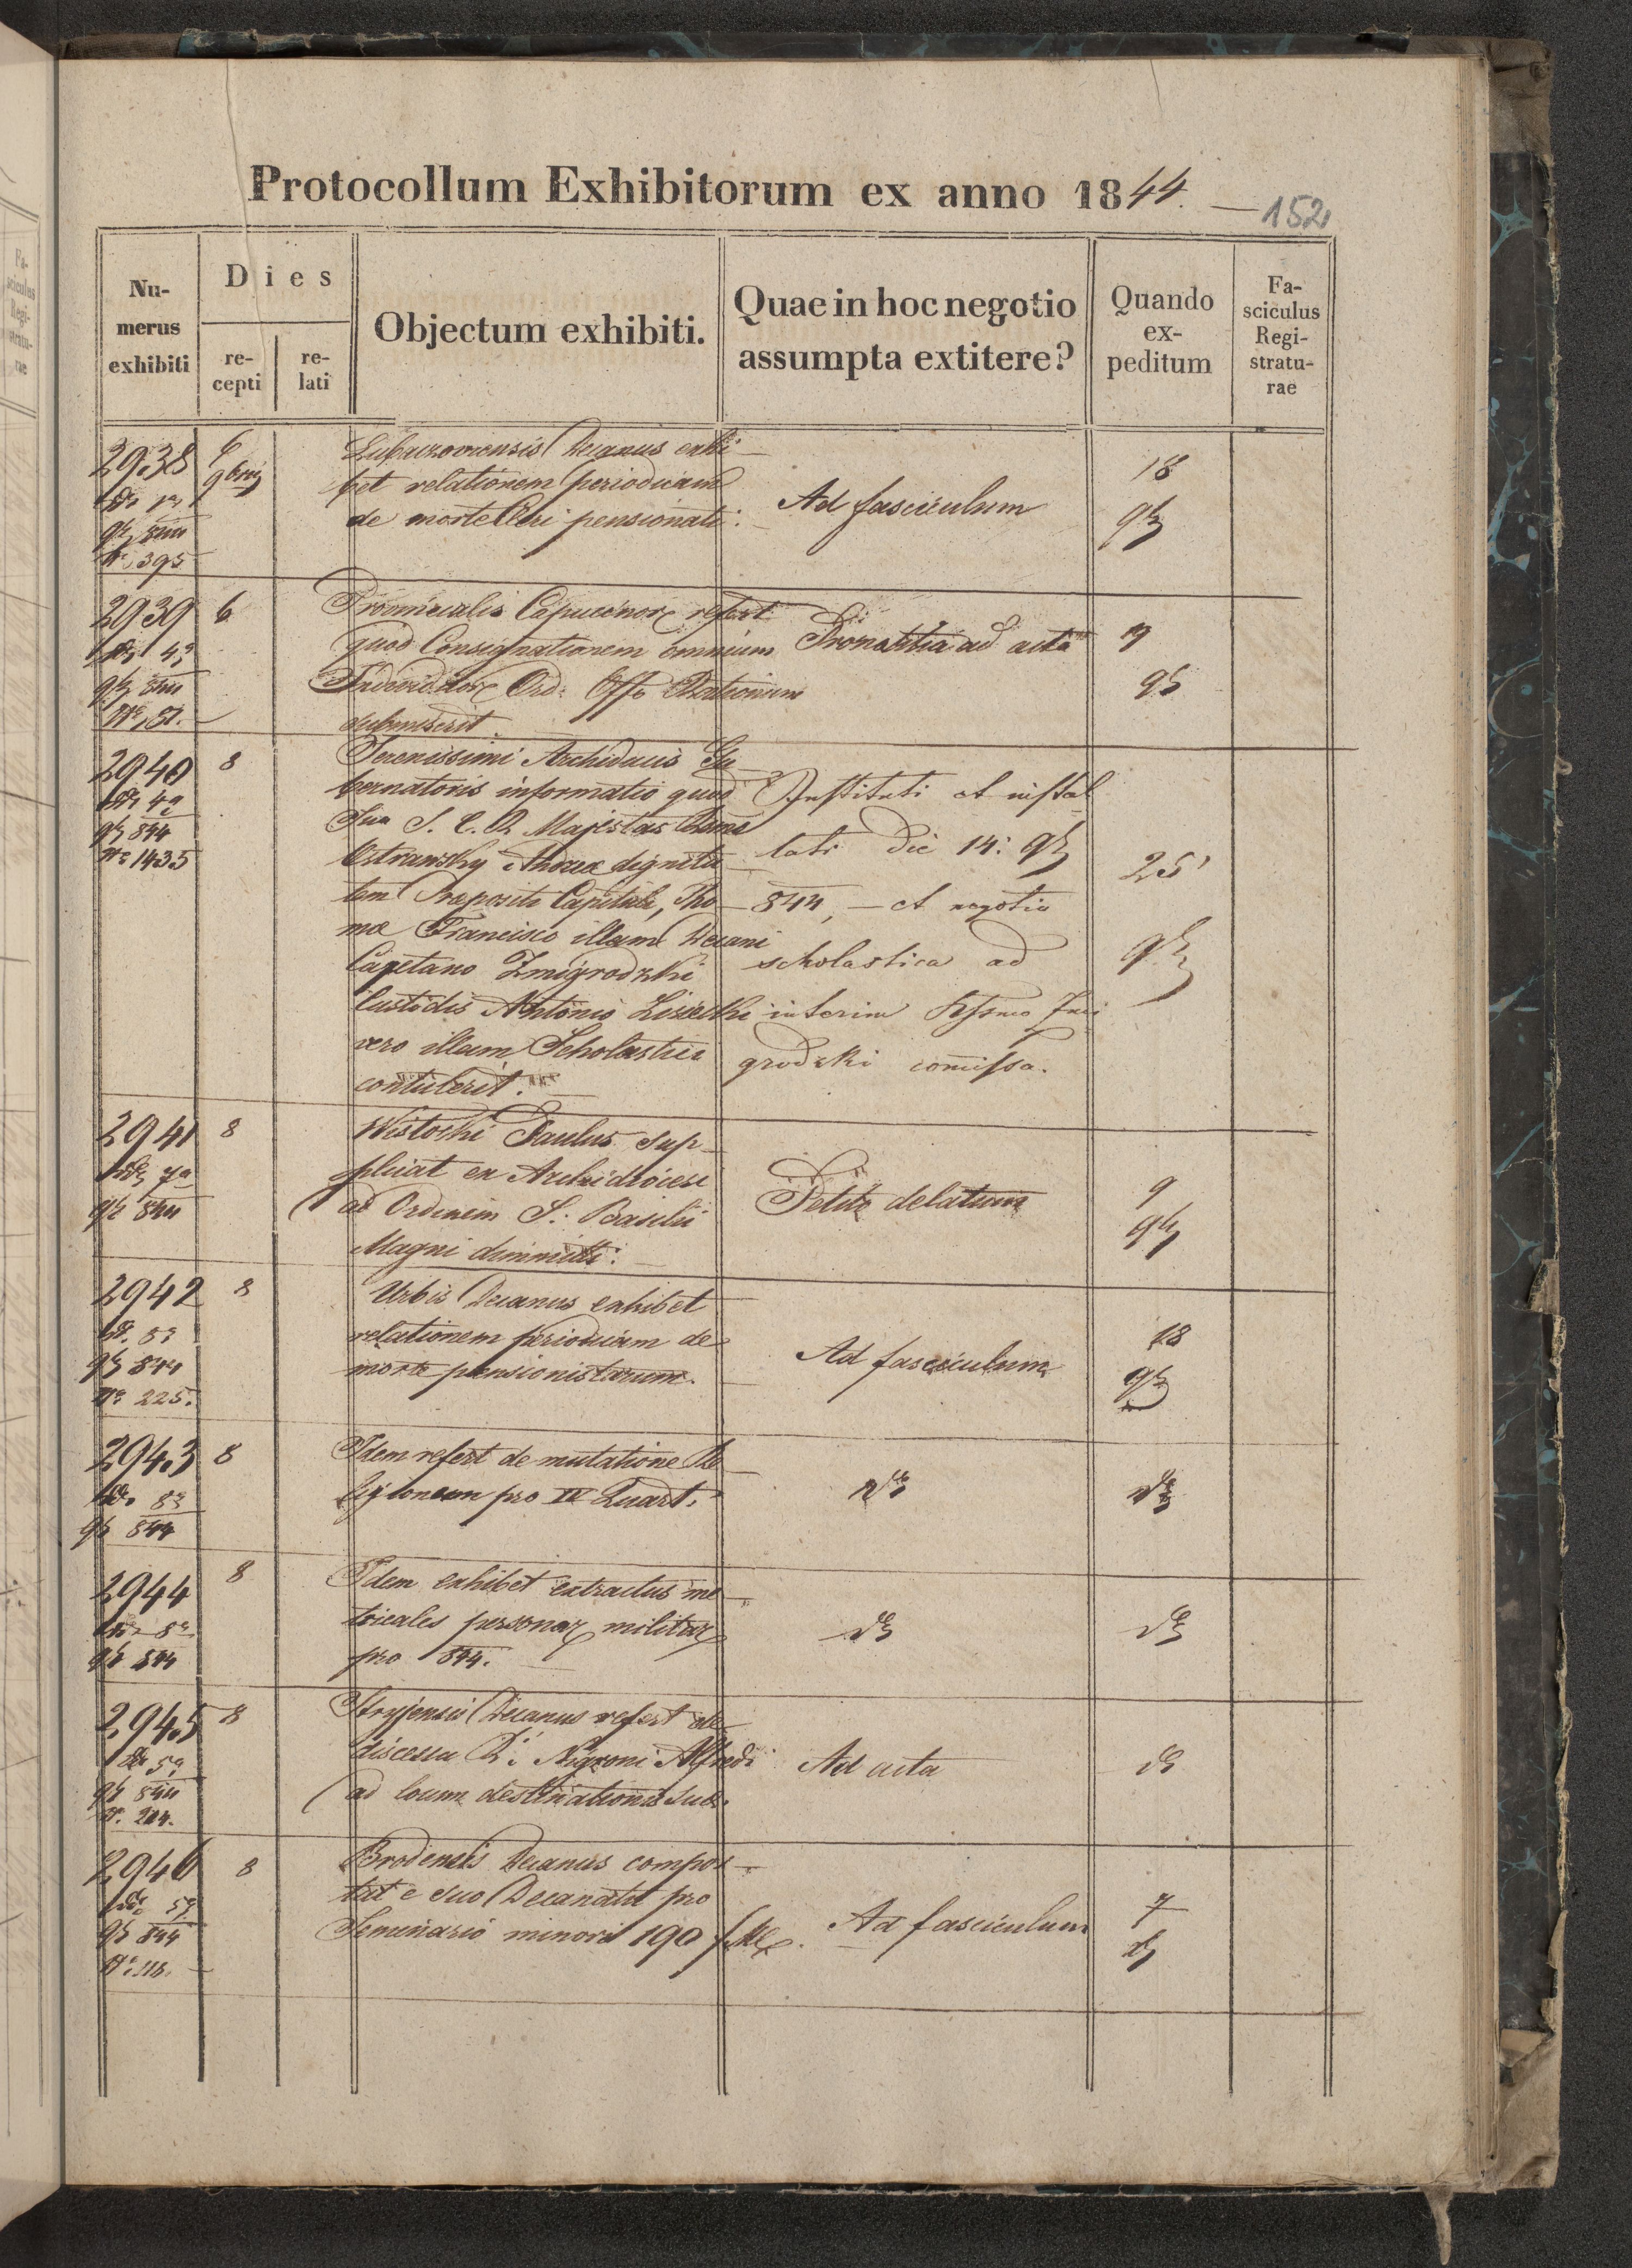 Protocollum Exhibitorum ex anno 1844.
152
Numerus exhibiti
Dies
recepti
relati
Objectum exhibiti.
Quae in hoc negotio assumpta extitere?
Quando expeditum
Fasciculus Registraturae
2938
6
9bris
844
395
Lubaczoviensis Decanus exhi-
bet relationem periodicam
de morte Cleri pensionati.
Ad fasciculum
18
9b
2939
6
844
Provincialis Capucinor refert
quod Consignationem omnium
Individuor Ord:
submiserit
Pro notitia ad acta
9
9b
2940
8
844
No 1435
Serenissimi Archiducis Gu-
bernatoris informatio quod
Sua S. C. R. Majestas
Ostrawsky Andreae dignita-
tem Praepositi Capituli, Tho-
mae Francisco illam Decani
Cajetano Zmigrodzki
Custodis Antonio
vero illam Scholastici
contulerit.
Instituti et instal
lati die 14: 9b
844, - et negotia
scholastica ad
interim
grodzki comissa.
25
9b
2941
8
844
Wistocki Paulus sup-
plicat ex Archidioecesi
ad Ordinem S. Basilii
Magni dimmitti.
Petito delatum
9
9b
2942
8
844
No 225.
Urbis Decanus exhibet
relationem periodicam de
morte pensionistarum.
Ad fasciculum
18
9b
2943
8
844
Idem refert de mutatione Re
ligionum pro IV Quart.
2944
8
844
Idem exhibet extractus me-
tricales personar militar
pro 844.
2945
8
844
No. 204.
Stryjensis Decanus refert de
discessu R. Nigroni Alfredi
ad locum destinationis suae.
Ad acta
2946
8
844
Brodensis Decanus compor-
tat e suo Decanatu pro
Seminario minori 190 f
Ad fasciculum
7